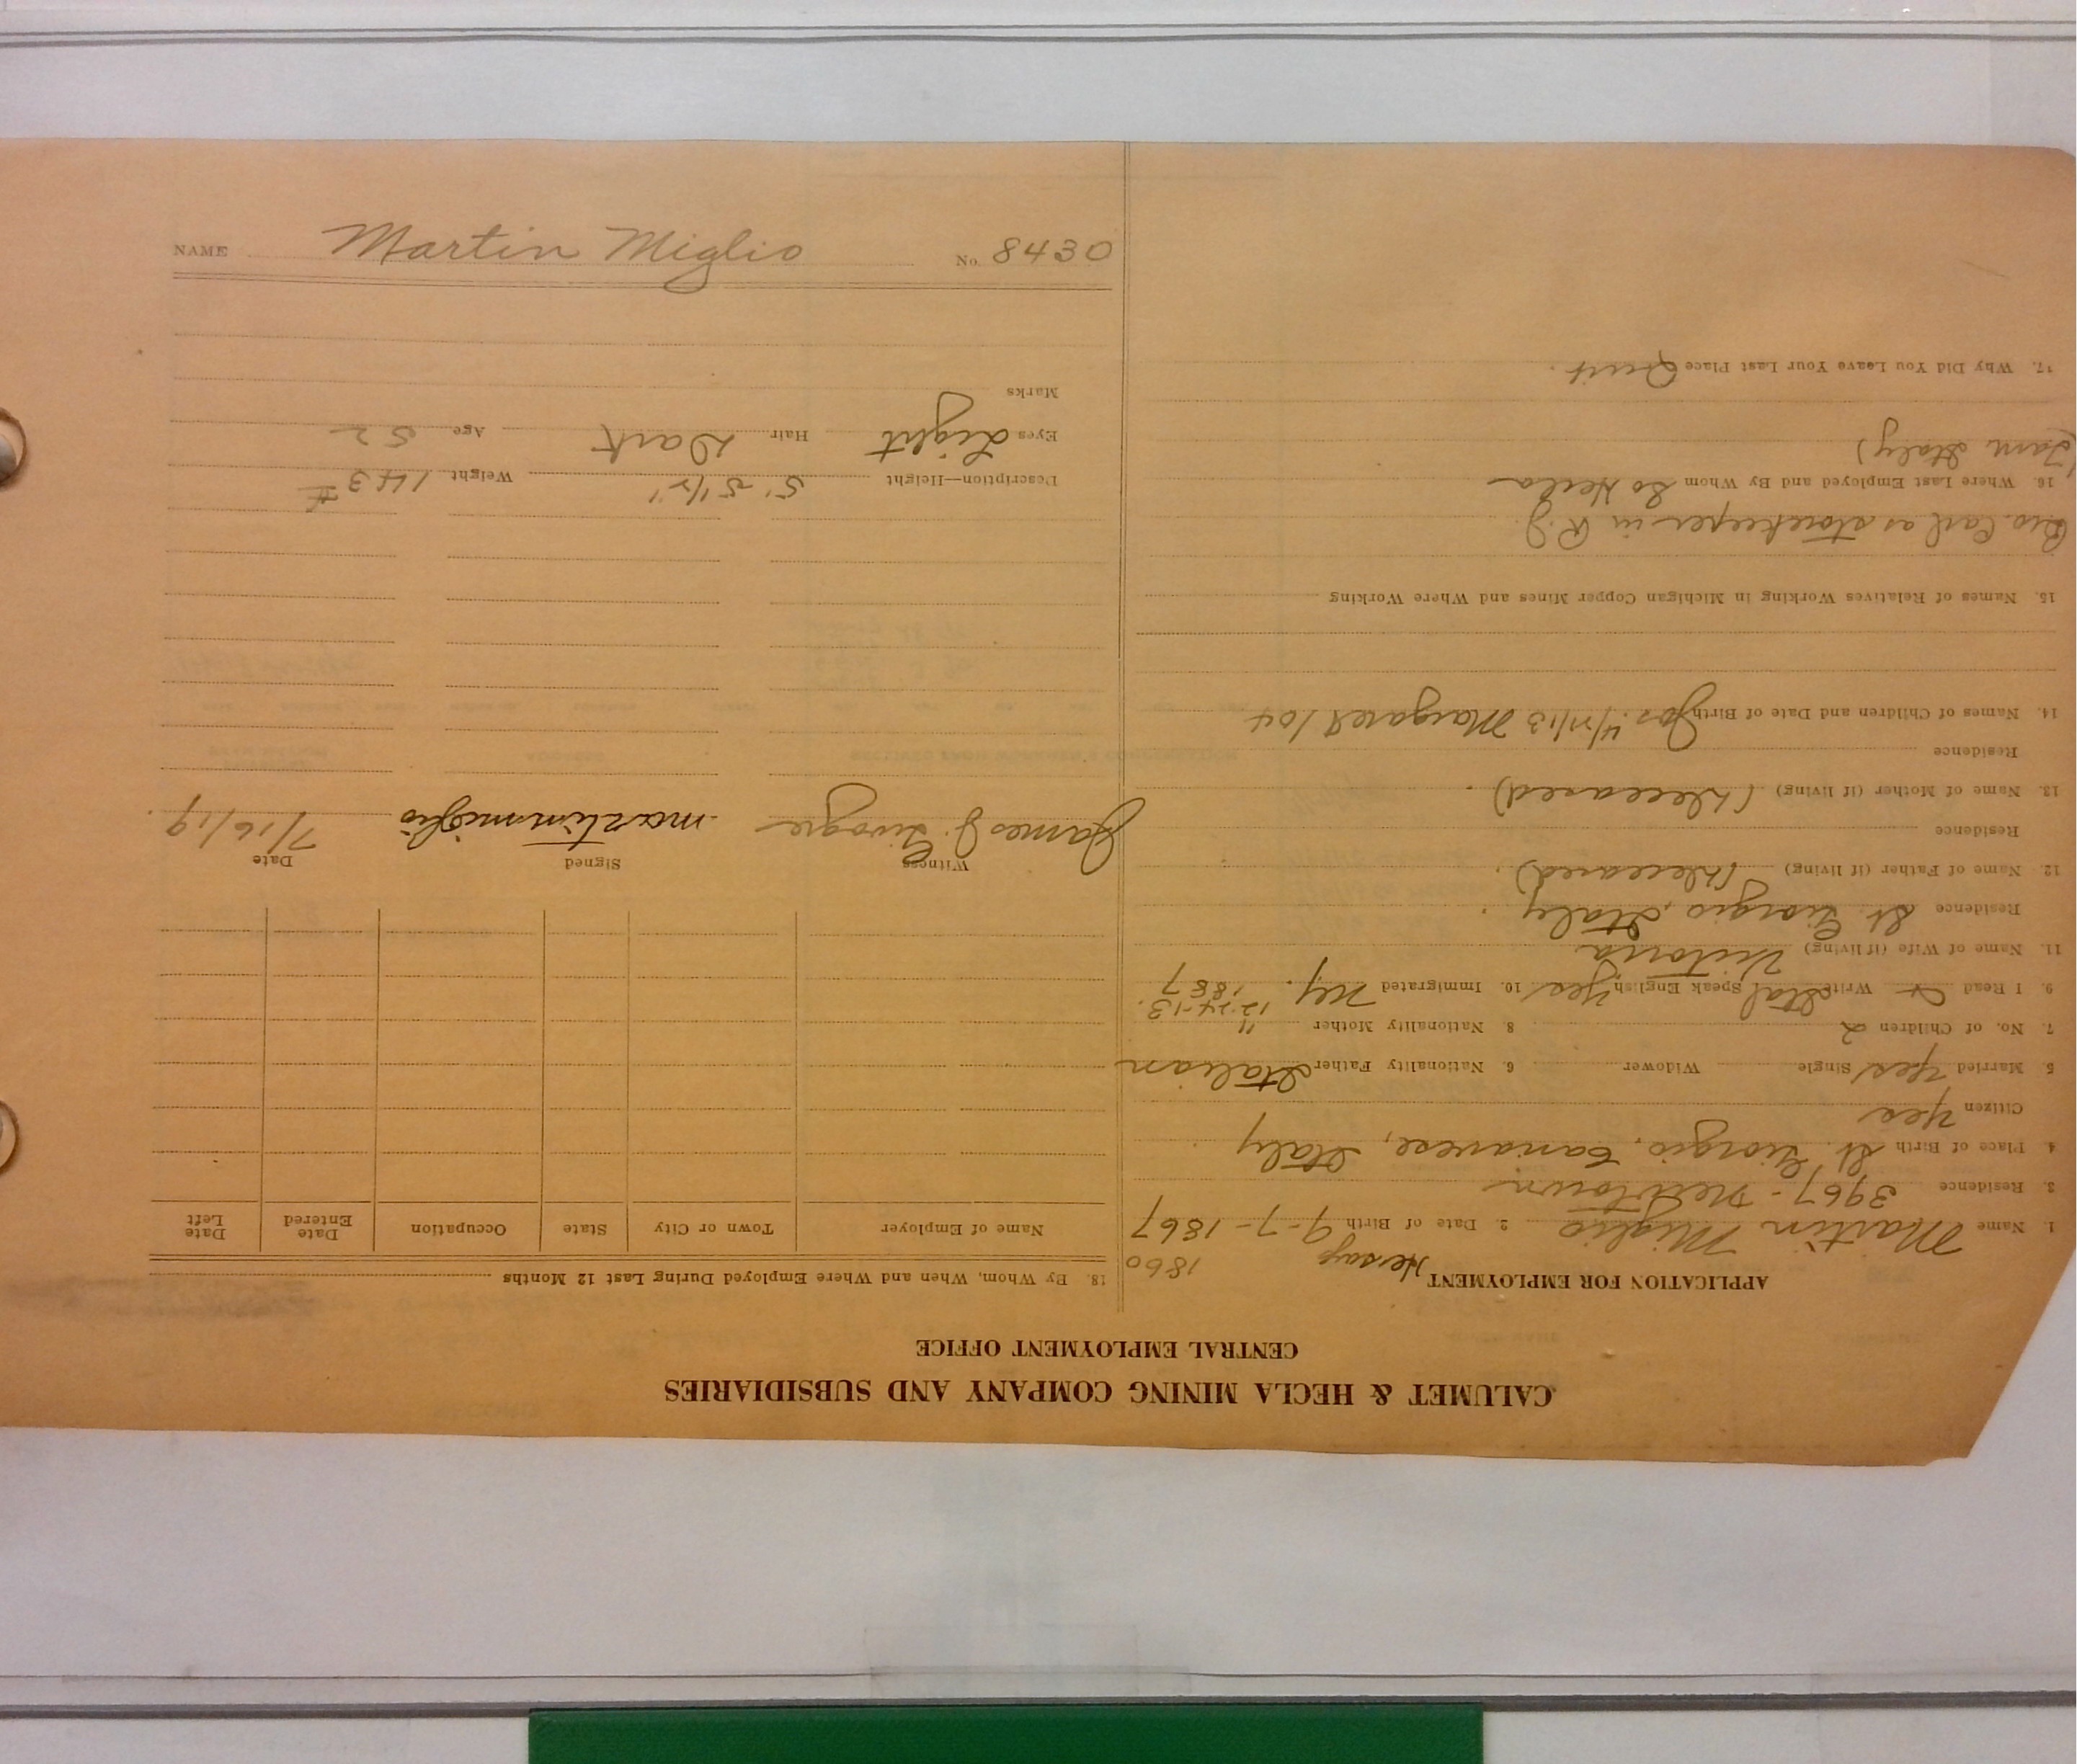 NAME Martin Miglio No. 8430
CALUMET & HECLA MINING COMPANY AND SUBSIDIARIES
CENTRAL EMPLOYMENT OFFICE
APPLICATION FOR EMPLOYMENT
He says 1860
1. Name Martin Miglio 2. Date of Birth 9-7-1867
3. Residence 3967-
4. Place of Birth St. Giorgio, Canavese, Italy
Citizen Yes
5. Married Yes Single Widower 6. Nationality Father Italian
7. No. of Children 2 8. Nationality Mother "
12-24-13.
9. I Read Write Ital I Speak English Yes 10. Immigrated NY. 1887
11. Name of Wife (if living) Victoria
Residence St. Giorgio, Italy.
12. Name of Father (if living) (deceased).
Residence
13. Name of Mother (if living) (deceased).
Residence
14. Names of Children and Date of Birth Jos. Margaret
15. Names of Relatives Working in Michigan Copper Mines and Where Working
Bro. Carl as storekeeper in
16. Where Last Employed and By Whom So Hecla
Italy)
17. Why Did You Leave Your Last Place Quit.
18. By Whom, When and Where Employed During Last 12 Months
Name of Employer Town or City State Occupation Date Entered Date Left
Witness Signed Date
James J. martin miglio 7/16/19.
Description—Height 5' 5 1/2" Weight 143 #
Eyes Light Hair Dark Age 52
Marks